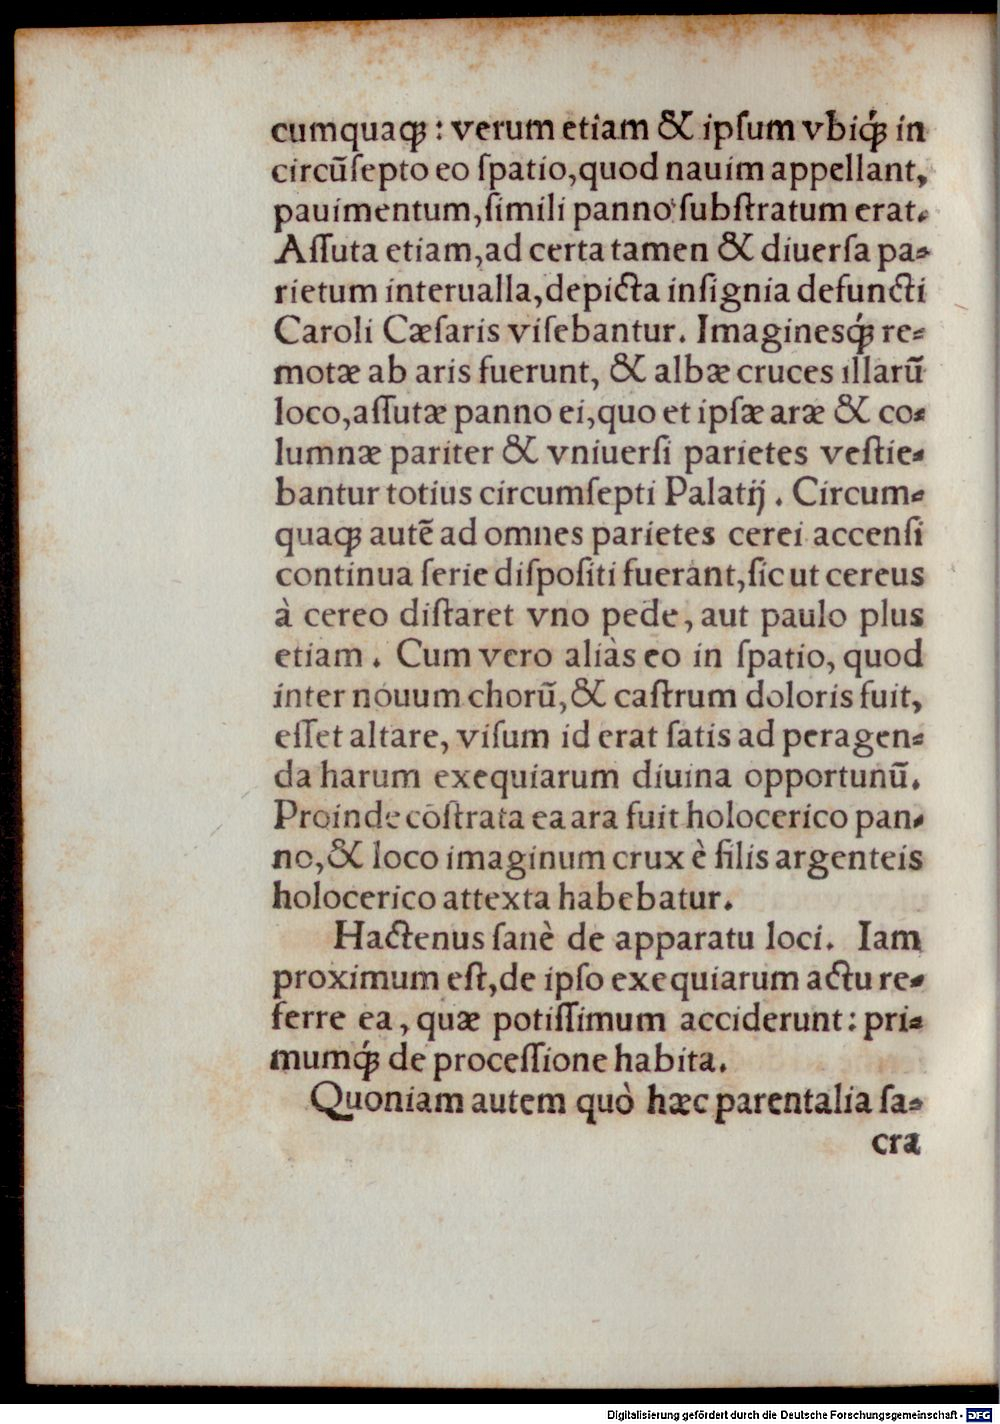 cumquaqꝫ: verum etiam & ipſum vbiq́ꝫ in
circũſepto eo ſpatio, quod nauim appellant,
pauimentum, ſimili panno ſubſtratum erat.
Aſſuta etiam, ad certa tamen & diuerſa pa-
rietum interualla, depicta inſignia defuncti
Caroli Cæſaris viſebantur. Imagineſq́ꝫ re-
motæ ab aris fuerunt, & albæ cruces illarũ
loco, aſſutæ panno ei, quo et ipſæ aræ & co-
lumnæ pariter & vniuerſi parietes veſtie-
bantur totius circumſepti Palatij. Circum-
quaqꝫ autẽ ad omnes parietes cerei accenſi
continua ſerie diſpoſiti fuerant, ſic ut cereus
à cereo diſtaret vno pede, aut paulo plus
etiam. Cum vero aliàs eo in ſpatio, quod
inter nouum chorũ, & caſtrum doloris fuit,
eſſet altare, viſum id erat ſatis ad peragen-
da harum exequiarum diuina opportunũ.
Proinde cõſtrata ea ara fuit holocerico pan-
no, & loco imaginum crux è filis argenteis
holocerico attexta habebatur.
Hactenus ſanè de apparatu loci. Iam
proximum eſt, de ipſo exequiarum actu re-
ferre ea, quæ potiſſimum acciderunt: pri-
mumq́ꝫ de proceſſione habita.
Quoniam autem quò hæc parentalia ſa-
cra
Digitalisierung gefördert durch die Deutsche Forschungsgemeinschaft - DFG